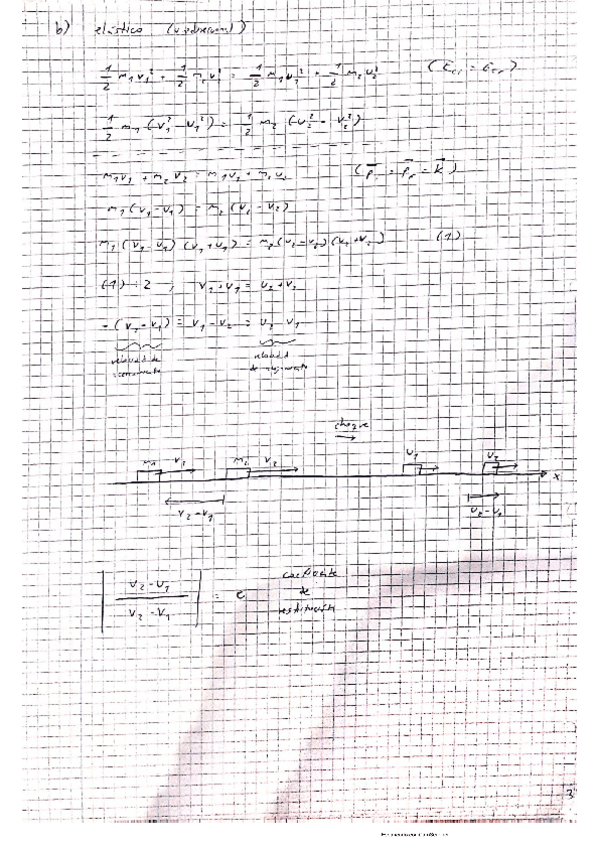 b) elástico (unidimensional)
½ m₁v₁² + ½ m₂v₂² = ½ m₁u₁² + ½ m₂u₂² (E_ci = E_cf)
½ m₁ (v₁² - u₁²) = ½ m₂ (u₂² - v₂²)
m₁v₁ + m₂v₂ = m₁u₁ + m₂u₂
m₁(v₁-u₁) = m₂(u₂-v₂)
m₁ (v₁-u₁) (v₁+u₁) = m₂(u₂-v₂)(u₂+v₂) (1)
(1) : 2 , v₁+u₁ = u₂+v₂
-(v₂-v₁) = v₁-v₂ = u₂-u₁
velocidad de acercamiento velocidad de alejamiento
choque
m₁ v₁ m₂ v₂ u₁ u₂ x
v₂-v₁ u₂-u₁
| u₂-u₁ / v₂-v₁ | = e coeficiente
de
restitución
3